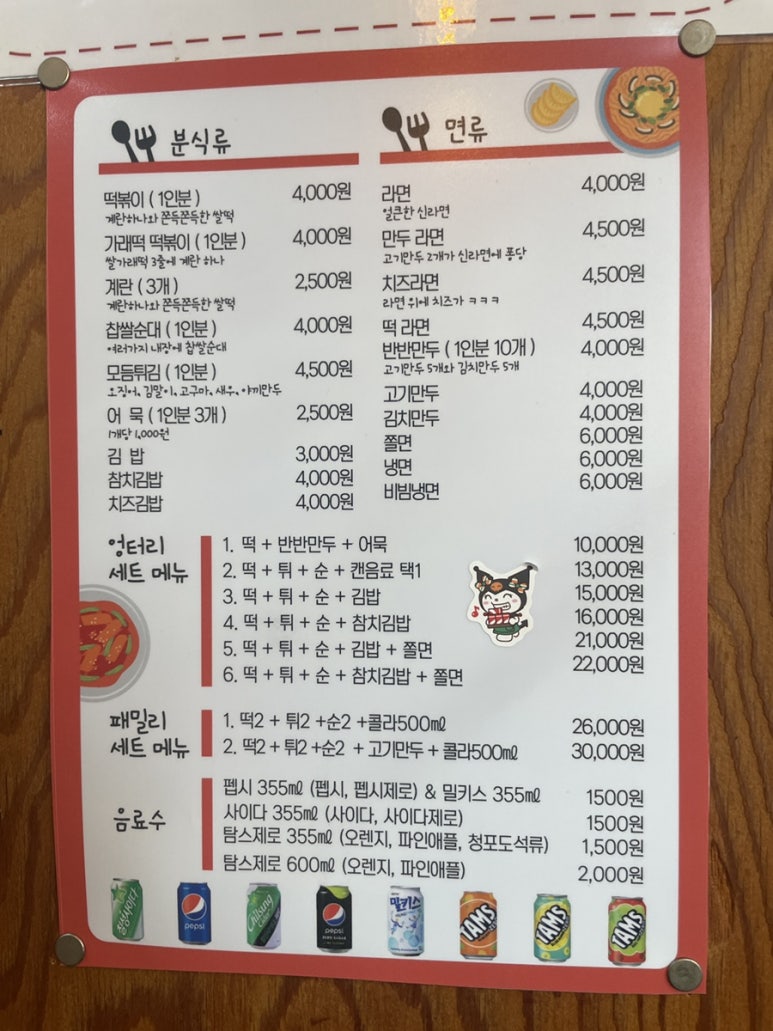 분식류
떡볶이 ( 1인분 ) 4,000원
계란하나와 쫀득쫀득한 쌀떡
가래떡 떡볶이 ( 1인분 ) 4,000원
쌀가래떡 3줄에 계란 하나
계란 ( 3개 ) 2,500원
계란하나와 쫀득쫀득한 쌀떡
찹쌀순대 ( 1인분 ) 4,000원
여러가지 내장에 찹쌀순대
모듬튀김 ( 1인분 ) 4,500원
오징어, 김말이, 고구마, 새우, 야끼만두
어 묵 ( 1인분 3개 ) 2,500원
1개당 1,000원
김 밥 3,000원
참치김밥 4,000원
치즈김밥 4,000원
면류
라면 4,000원
얼큰한 신라면
만두 라면 4,500원
고기만두 2개가 신라면에 퐁당
치즈라면 4,500원
라면 위에 치즈가 ㅋㅋㅋ
떡 라면 4,500원
반반만두 ( 1인분 10개 ) 4,000원
고기만두 5개와 김치만두 5개
고기만두 4,000원
김치만두 4,000원
쫄면 6,000원
냉면 6,000원
비빔냉면 6,000원
엉터리
세트 메뉴
1. 떡 + 반반만두 + 어묵 10,000원
2. 떡 + 튀 + 순 + 캔음료 택1 13,000원
3. 떡 + 튀 + 순 + 김밥 15,000원
4. 떡 + 튀 + 순 + 참치김밥 16,000원
5. 떡 + 튀 + 순 + 김밥 + 쫄면 21,000원
6. 떡 + 튀 + 순 + 참치김밥 + 쫄면 22,000원
패밀리
세트 메뉴
1. 떡2 + 튀2 +순2 +콜라500㎖ 26,000원
2. 떡2 + 튀2 +순2 + 고기만두 + 콜라500㎖ 30,000원
음료수
펩시 355㎖ (펩시, 펩시제로) & 밀키스 355㎖ 1500원
사이다 355㎖ (사이다, 사이다제로) 1500원
탐스제로 355㎖ (오렌지, 파인애플, 청포도석류) 1,500원
탐스제로 600㎖ (오렌지, 파인애플) 2,000원
칠성사이다
pepsi
Chilsung
pepsi
밀키스
TAMS
TAMS
TAMS